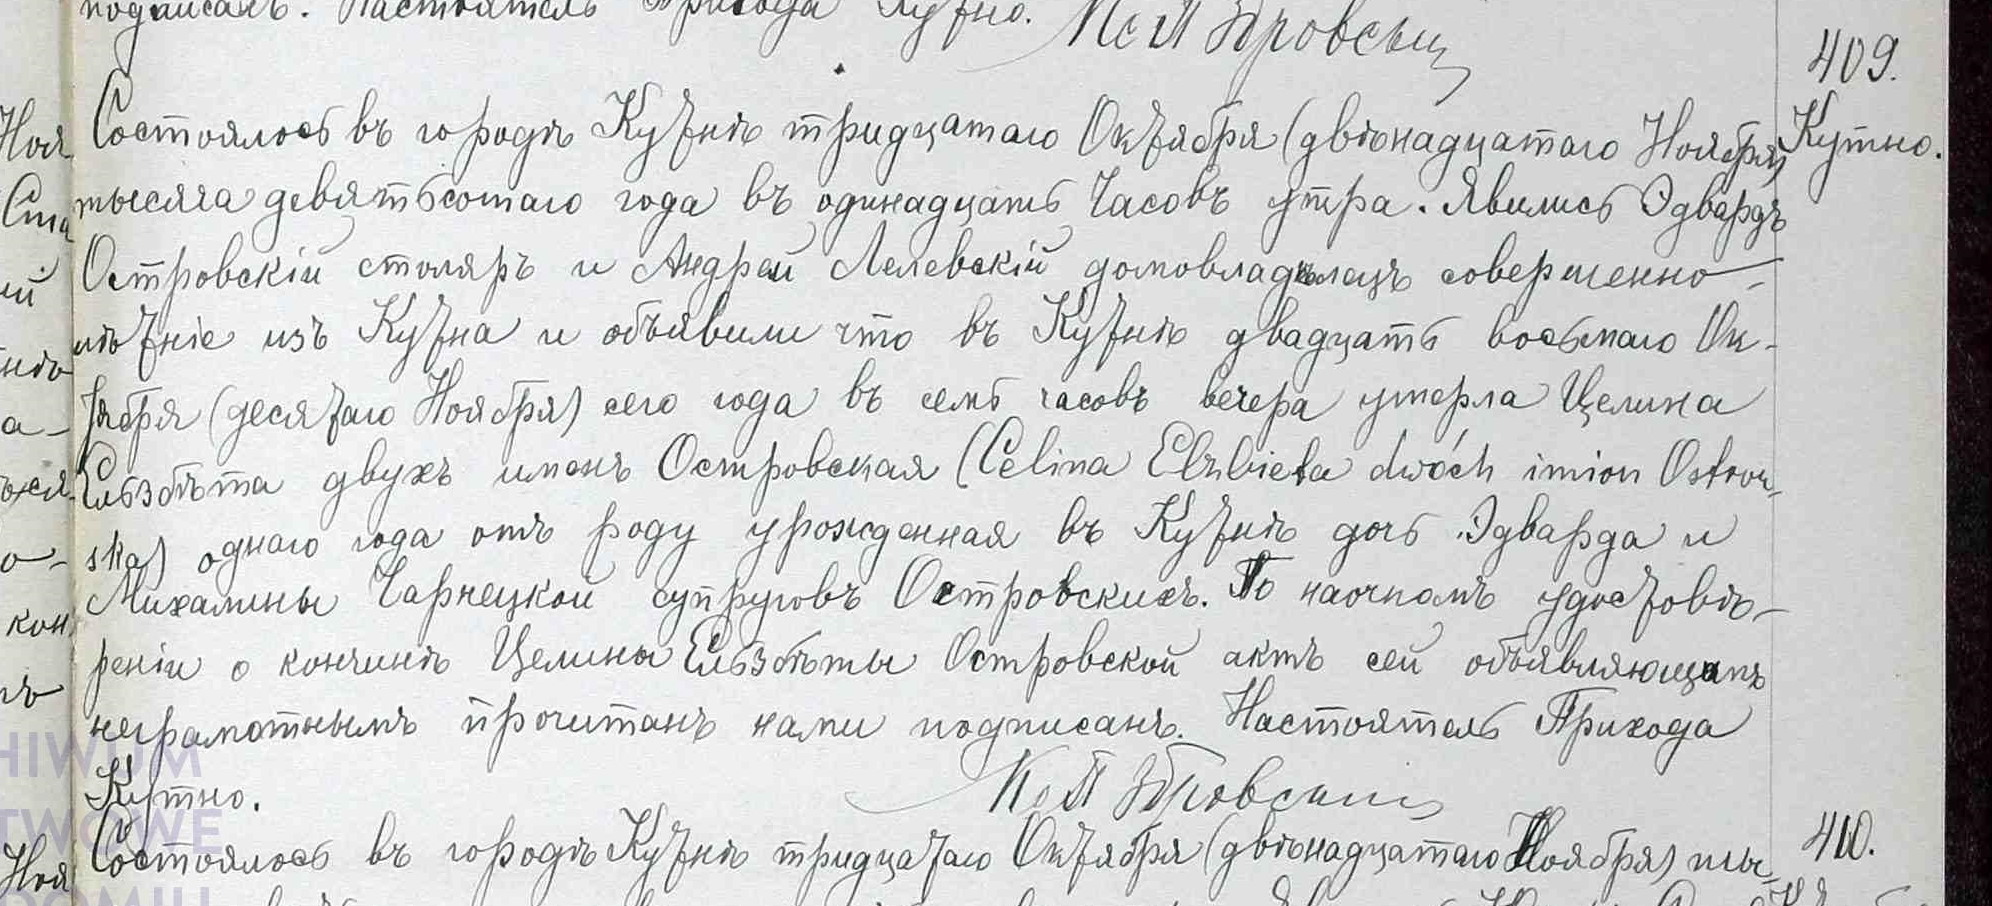 подписанъ. Настоятель Прихода Кутно.
409.
Кутно.
Состоялось въ городѣ Кутнѣ тридцатаго Октября (двѣнадцатаго Ноября)
тысяча девятьсотаго года въ одинадцать часовъ утра. Явились Эдвардъ
Островскій столяръ и Андрей Лелевскій домовладѣлецъ совершенно-
лѣтніе изъ Кутна и объявили что въ Кутнѣ двадцать восьмаго Ок-
тября (десятаго Ноября) сего года въ семь часовъ вечера умерла Целина
Ельзбѣта двухъ именъ Островская (Celina Elzbieta dwóch imion Ostrow-
ska) однаго года отъ роду урожденная въ Кутнѣ дочь Эдварда и
Михалины Чарнецкой супруговъ Островскихъ. По наочномъ удостовѣ-
реніи о кончинѣ Целины Ельзбѣты Островской актъ сей объявляющимъ
неграмотнымъ прочитанъ нами подписанъ. Настоятель Прихода
Кутно.
410.
Состоялось въ городѣ Кутнѣ тридцатаго Октября (двѣнадцатаго Ноября) ты-